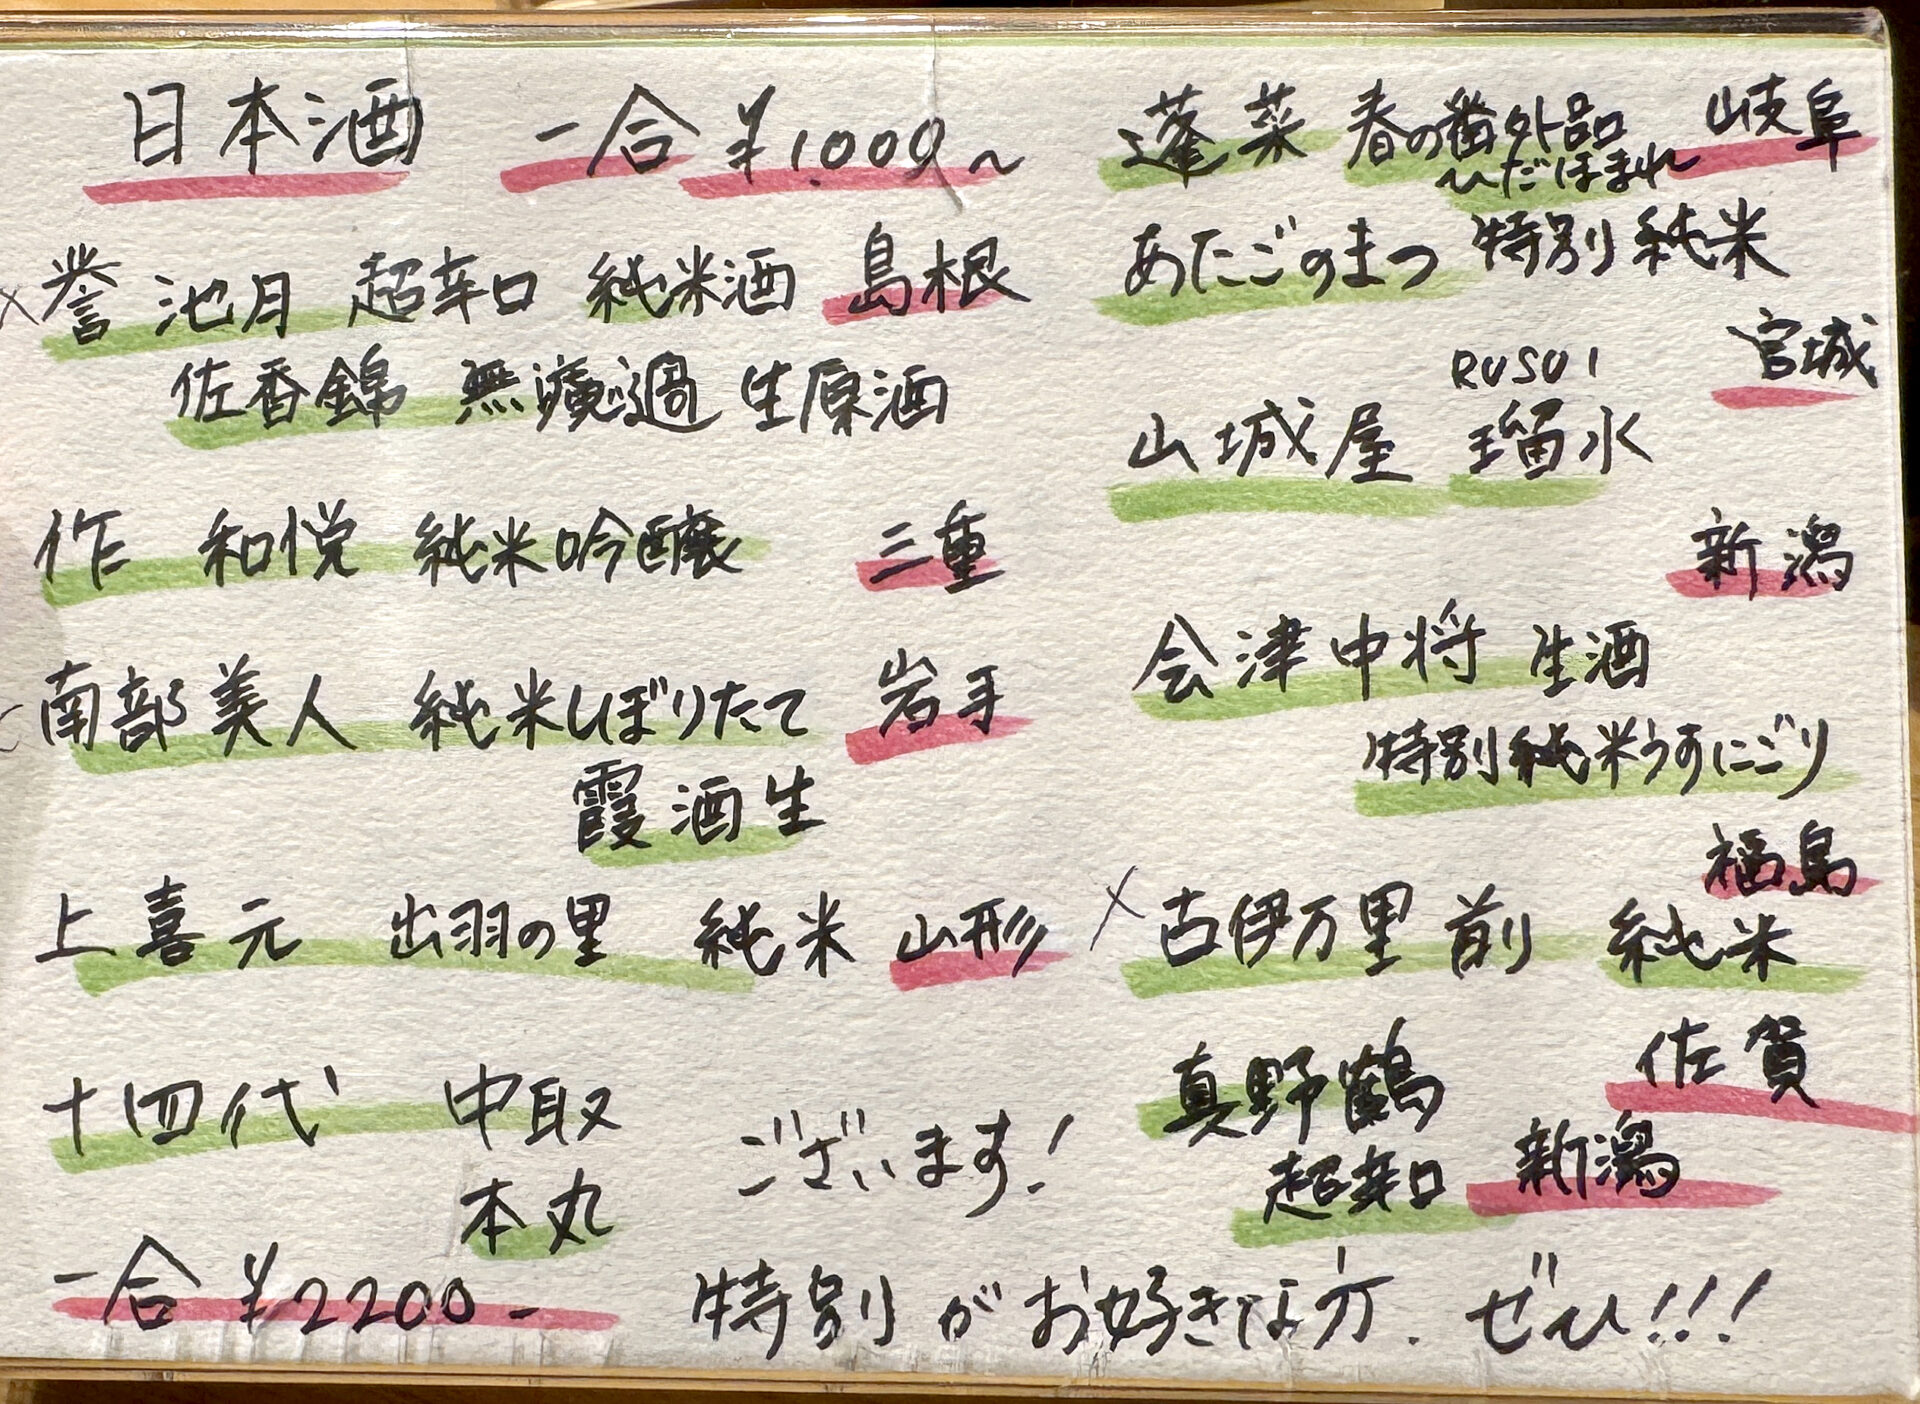 日本酒 一合 ¥1,000〜
×誉 池月 超辛口 純米酒 島根
佐香錦 無濾過 生原酒
作 和悦 純米吟醸 三重
南部美人 純米しぼりたて 岩手
霞酒生
上喜元 出羽の里 純米 山形
十四代 中取
本丸
ございます!
一合 ¥2200-
蓬莱 春の番外品 岐阜
〜ひだほまれ〜
あたごのまつ 特別純米
宮城
RUSUI
山城屋 瑠水
新潟
会津中将 生酒
特別純米うすにごり
福島
×古伊万里 前 純米
佐賀
真野鶴
超辛口 新潟
特別がお好きな方、ぜひ!!!